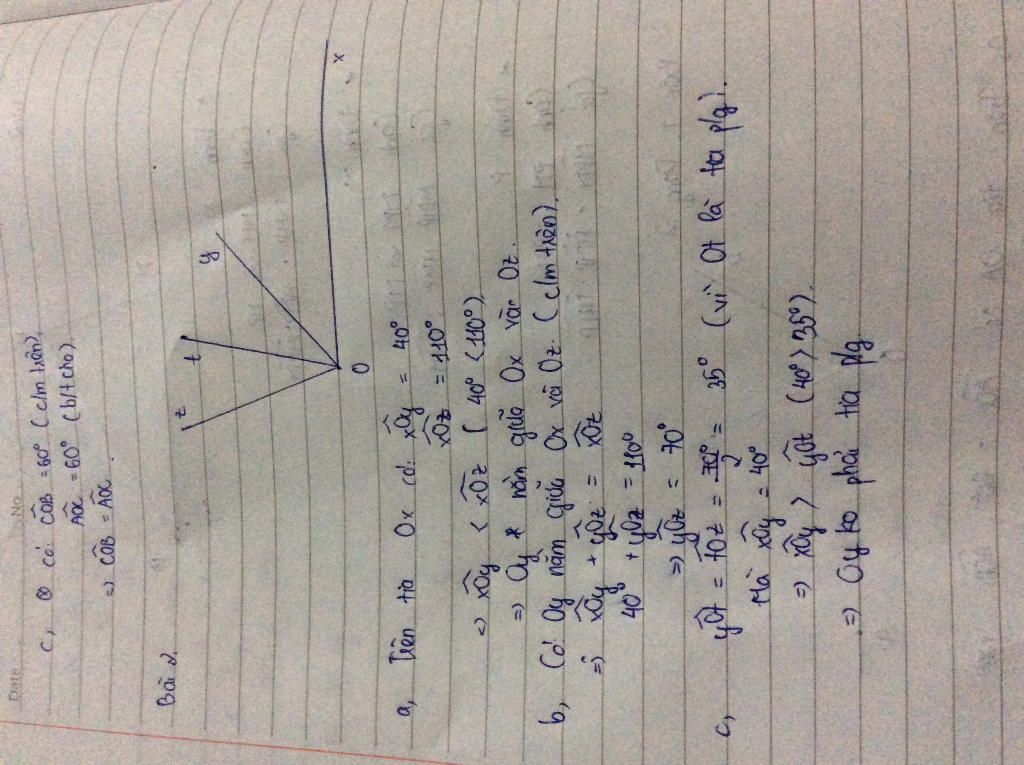 Date No
c, có: CÔB = 60° (c/m trên)
AÔC = 60° (b/t cho)
=> CÔB = AÔC
Bài 2.
z
t
y
O
x
a, Trên tia Ox có: xÔy = 40°
xÔz = 110°
=> xÔy < xÔz (40° < 110°)
=> Oy nằm giữa Ox và Oz.
b, Có: Oy nằm giữa Ox và Oz. (c/m trên).
=> xÔy + yÔz = xÔz
40° + yÔz = 110°
=> yÔz = 70°
c, yÔt = tÔz = 70°/2 = 35° (vì Ot là tia p/g).
Mà xÔy = 40°
=> xÔy > yÔt (40° > 35°).
=> Oy ko phải tia p/g.